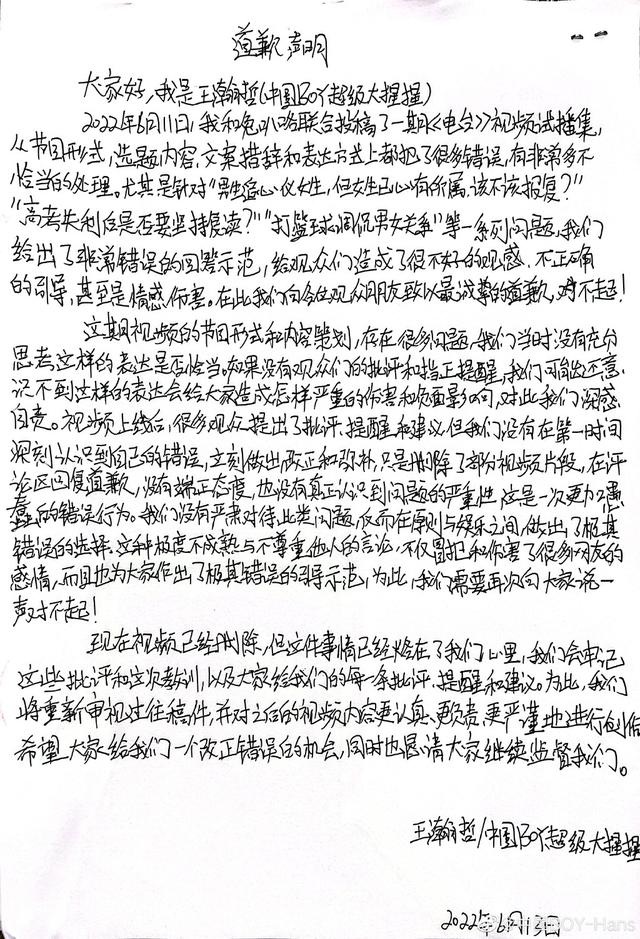 道歉声明
大家好，我是王瀚哲(中国BOY超级大猩猩)
2022年6月11日，我和兔叭咯联合投稿了一期《电台》视频试播集，
从节目形式，选题内容，文案措辞和表达方式上都犯了很多错误，有非常多不
恰当的处理。尤其是针对“男生追心仪女生，但女生已心有所属，该不该报复？”
“高考失利后是否要坚持复读？”“打篮球调侃男女关系”等一系列问题，我们
给出了非常错误的回答示范，给观众们造成了很不好的观感，不正确
的引导，甚至是情感伤害。在此我们向各位观众朋友致以最诚挚的道歉，对不起！
这期视频的节目形式和内容策划，存在很多问题，我们当时没有充分
思考这样的表达是否恰当。如果没有观众们的批评和指正提醒，我们可能还意
识不到这样的表达会给大家造成怎样严重的伤害和负面影响，对此我们深感
自责。视频上线后，很多观众提出了批评，提醒和建议，但我们没有在第一时间
深刻认识到自己的错误，立刻做出改正和弥补，只是删除了部分视频片段，在评
论区回复道歉，没有端正态度，也没有真正认识到问题的严重性，这是一次更加愚
蠢的错误行为。我们没有严肃对待此类问题，反而在原则与娱乐之间，做出了极其
错误的选择，这种极度不成熟与不尊重他人的言论，不仅冒犯和伤害了很多朋友的
感情，而且也为大家作出了极其错误的引导示范，为此，我们需要再次向大家说一
声对不起！
现在视频已经删除，但这件事情已经烙在了我们心里，我们会牢记
这些批评和这次教训，以及大家给我们的每一条批评、提醒和建议。为此，我们
将重新审视过往稿件，并对之后的视频内容更认真、更负责、更严谨地进行创作
希望大家给我们一个改正错误的机会，同时也恳请大家继续监督我们。
王瀚哲/中国BOY超级大猩猩
2022年6月13日
BOY-Hans